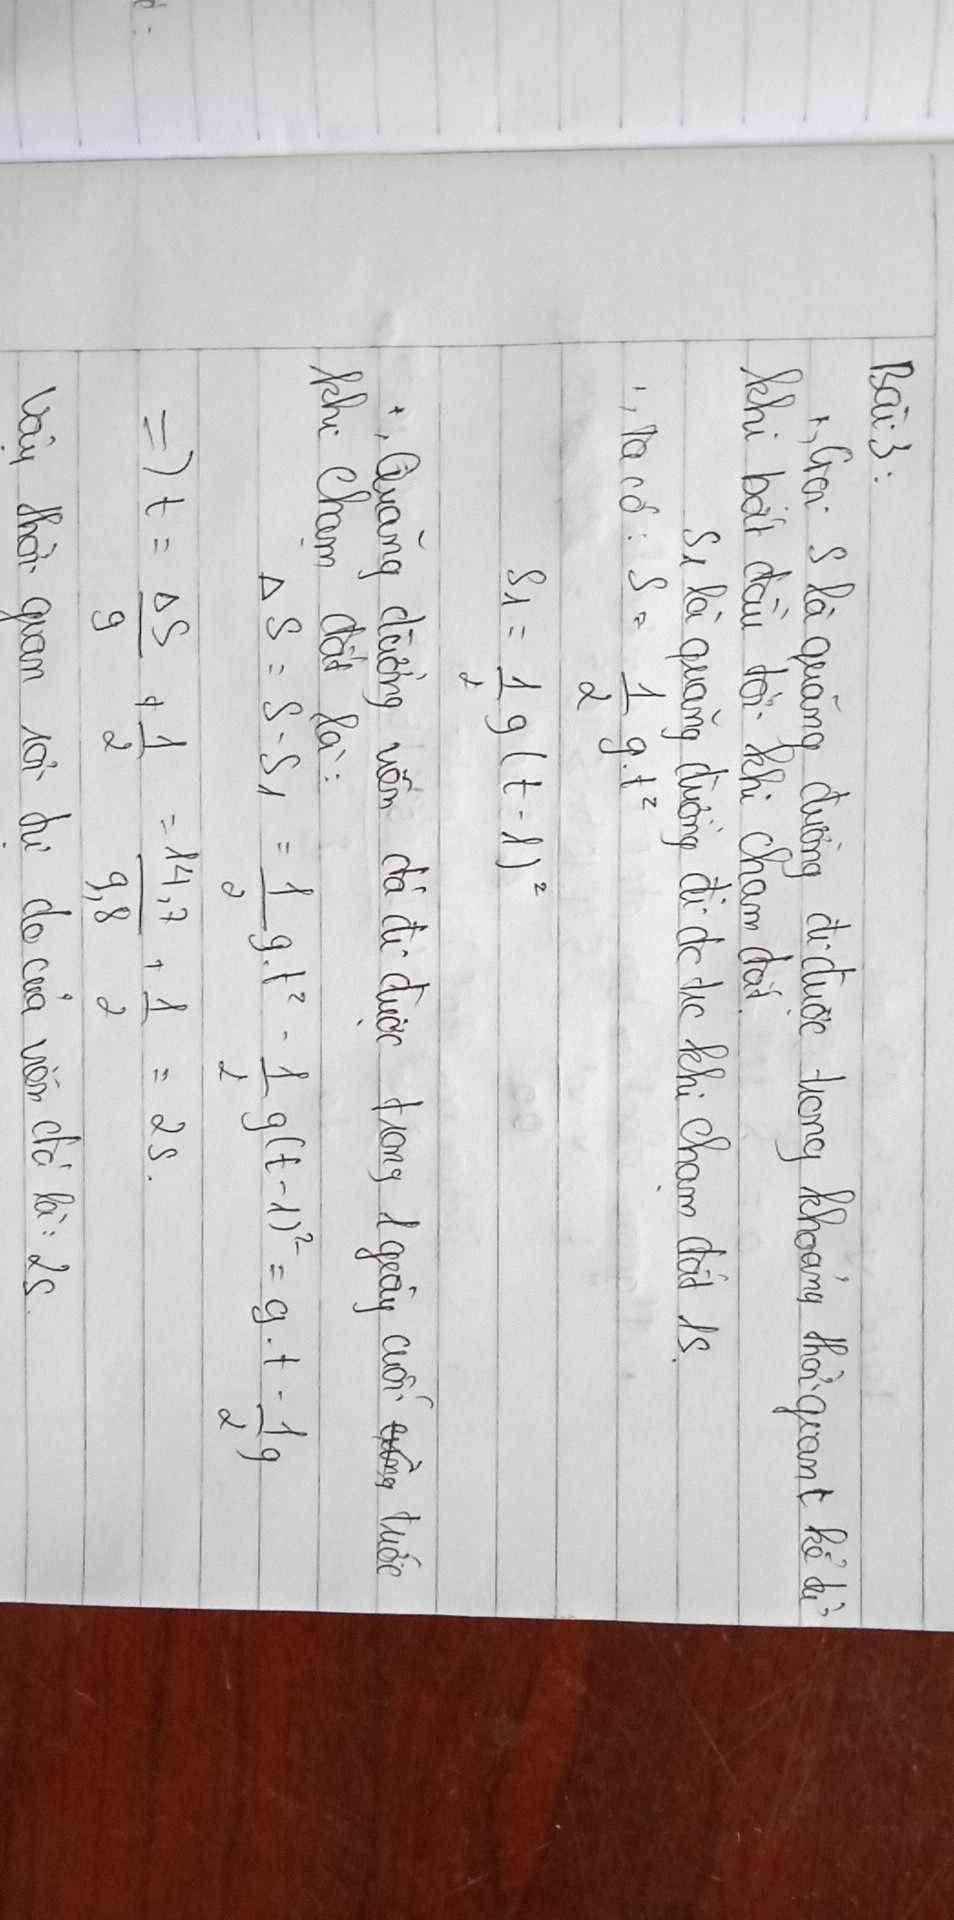 Bài 3:
+, Gọi S là quãng đường đi được trong khoảng thời gian t kể từ
khi bắt đầu tới khi chạm đất.
S1 là quãng đường đi đc trc khi chạm đất 1s.
+, Ta có: S = 1/2 g.t²
S1 = 1/2 g(t-1)²
+, Quãng đường vốn đá đi được trong 1 giây cuối trước
khi chạm đất là:
ΔS = S - S1 = 1/2 g.t² - 1/2 g(t-1)² = g.t - 1/2 g
=) t = ΔS/g + 1/2 = 14,7/9,8 + 1/2 = 2s.
Vậy thời gian rơi tự do của vốn đá là: 2s.